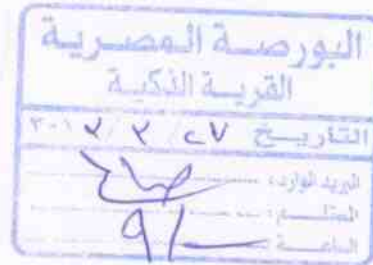 البورصة المصرية
القرية الذكية
التاريخ ٢٧ / ٣ / ٢٠١٧
البريد الوارد :
المستلم :
الساعة ٩/